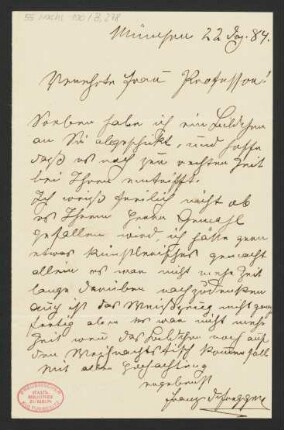 München 22 Dez. 84.
Verehrte Frau Professor!
Soeben habe ich ein Bildchen
an Sie abgeschickt, und hoffe
daß es noch zur rechten Zeit
bei Ihnen eintrifft.
Ich weiß freilich nicht ob
es Ihrem Herrn Gemahl
gefallen wird, ich hätte gern
etwas künstlerisches gemacht
allein es war nicht mehr Zeit
lange darüber nachzudenken
auch ist das nicht ganz
fertig aber es war nicht mehr
Zeit wenn das Bildchen noch auf
den Weihnachtstisch kommen soll
Mit aller Hochachtung
ergebenst
Franz